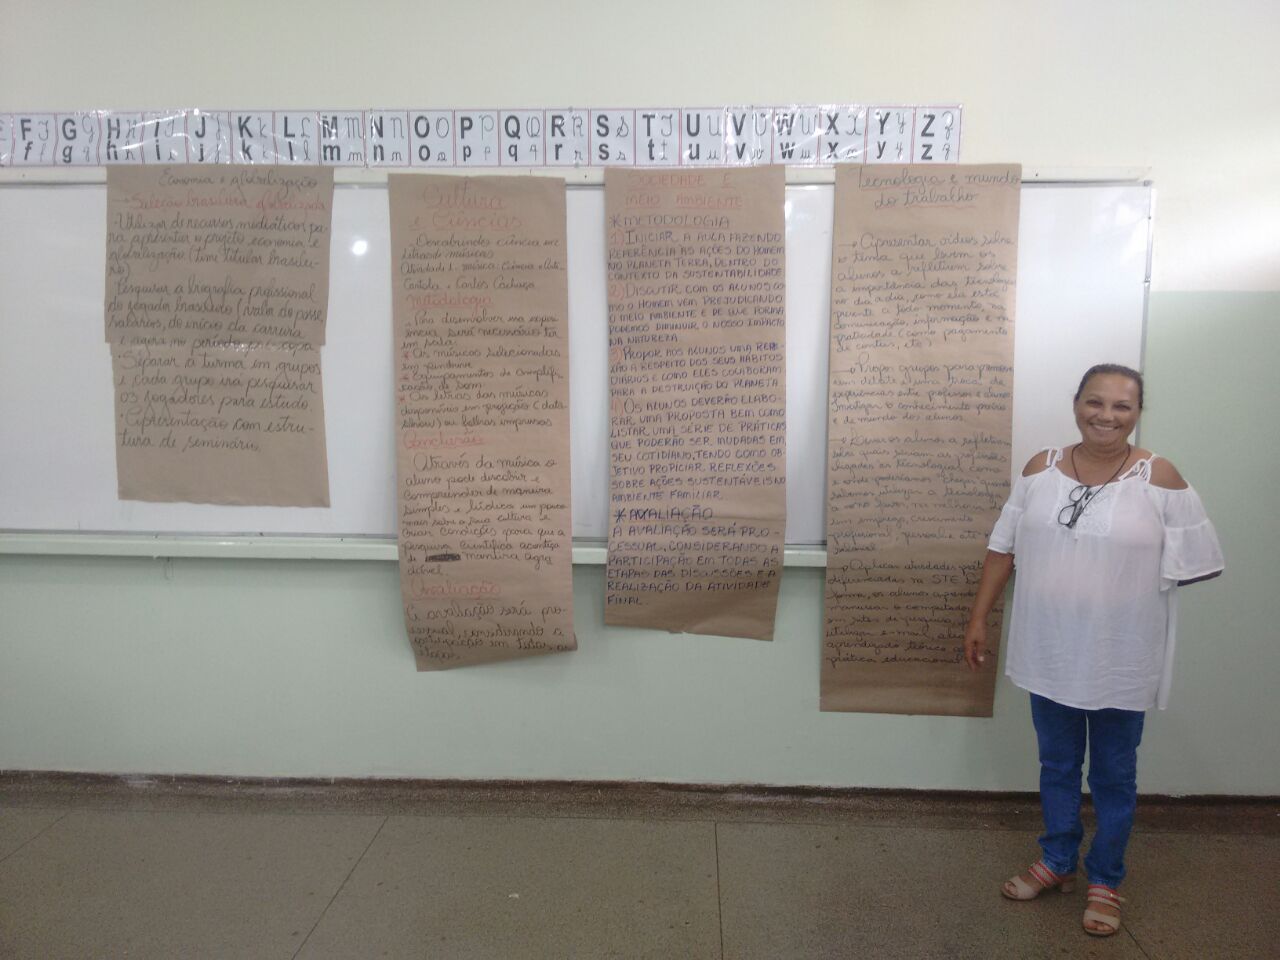 F G H I J K L M N O P Q R S T U V W X Y Z
f g h i j k l m n o p q r s t u v w x y z
Economia e globalização
Seleção brasileira globalizada
Utilizar de recursos mediáticos pa-
ra apresentar o projeto economia e
globalização (time titular brasilei-
ro)
Pesquisar a biografia profissional
do jogador brasileiro (valor do passe
salários, do início da carreira
e agora no período pré-copa
Separar a turma em grupos
e cada grupo irá pesquisar
os jogadores para estudo.
Apresentação com estru-
tura de seminário.
Cultura
e Ciências
Descobrindo ciência em
letras de músicas
Atividade 1. música: Ciência e Arte
Cartola e Carlos Cachaça
Metodologia
Para desenvolver essa expe-
riência será necessário ter
em sala:
* As músicas selecionadas
em pendrive
* Equipamentos de amplifi-
cação de som
* As letras das músicas
disponíveis em projeção (data-
show) ou folhas impressas
Conclusão
Através da música o
aluno pode descobrir e
compreender de maneira
simples e lúdica um pouco
mais sobre a sua cultura e
criar condições para que a
pesquisa científica aconteça
de maneira agra
dável.
Avaliação
A avaliação será pro-
cessual, considerando a
participação em todas as
etapas
SOCIEDADE E
MEIO AMBIENTE
* METODOLOGIA
1) INICIAR A AULA FAZENDO
REFERÊNCIA ÀS AÇÕES DO HOMEM
NO PLANETA TERRA, DENTRO DO
CONTEXTO DA SUSTENTABILIDADE
2) DISCUTIR COM OS ALUNOS CO
MO O HOMEM VEM PREJUDICANDO
O MEIO AMBIENTE E DE QUE FORMA
PODEMOS DIMINUIR O NOSSO IMPACTO
NA NATUREZA
3) PROPOR AOS ALUNOS UMA REFLE-
XÃO A RESPEITO DOS SEUS HÁBITOS
DIÁRIOS E COMO ELES COLABORAM
PARA A DESTRUIÇÃO DO PLANETA
4) OS ALUNOS DEVERÃO ELABO-
RAR UMA PROPOSTA BEM COMO
LISTAR UMA SÉRIE DE PRÁTICAS
QUE PODERÃO SER MUDADAS EM
SEU COTIDIANO, TENDO COMO OB-
JETIVO PROPICIAR REFLEXÕES
SOBRE AÇÕES SUSTENTÁVEIS NO
AMBIENTE FAMILIAR.
* AVALIAÇÃO
A AVALIAÇÃO SERÁ PRO-
CESSUAL, CONSIDERANDO A
PARTICIPAÇÃO EM TODAS AS
ETAPAS DAS DISCUSSÕES E A
REALIZAÇÃO DA ATIVIDADE
FINAL
Tecnologia e mundo
do trabalho
Apresentar vídeos sobre
o tema que levem os
alunos a refletirem sobre
a importância das tecnologias
no dia a dia, como ela está
presente a todo momento, na
comunicação, informação e na
praticidade (como pagamento
de contas, etc)
Propor grupos para promover
um debate e uma troca de
experiências entre professor e alunos.
Investigar o conhecimento prévio
e de mundo dos alunos.
Levar os alunos a refletirem
sobre quais seriam as profissões
ligadas às tecnologias, como
e onde poderíamos "chegar" quando
sabemos utilizar a tecnologia
a nosso favor, na melhoria de
um emprego, crescimento
profissional, pessoal e até
salarial.
Aplicar atividades
diferenciadas na STE
forma, os alunos
manusear o computador
em sites de pesquisa,
utilizar e-mail,
aprendizado teórico
prática educacional